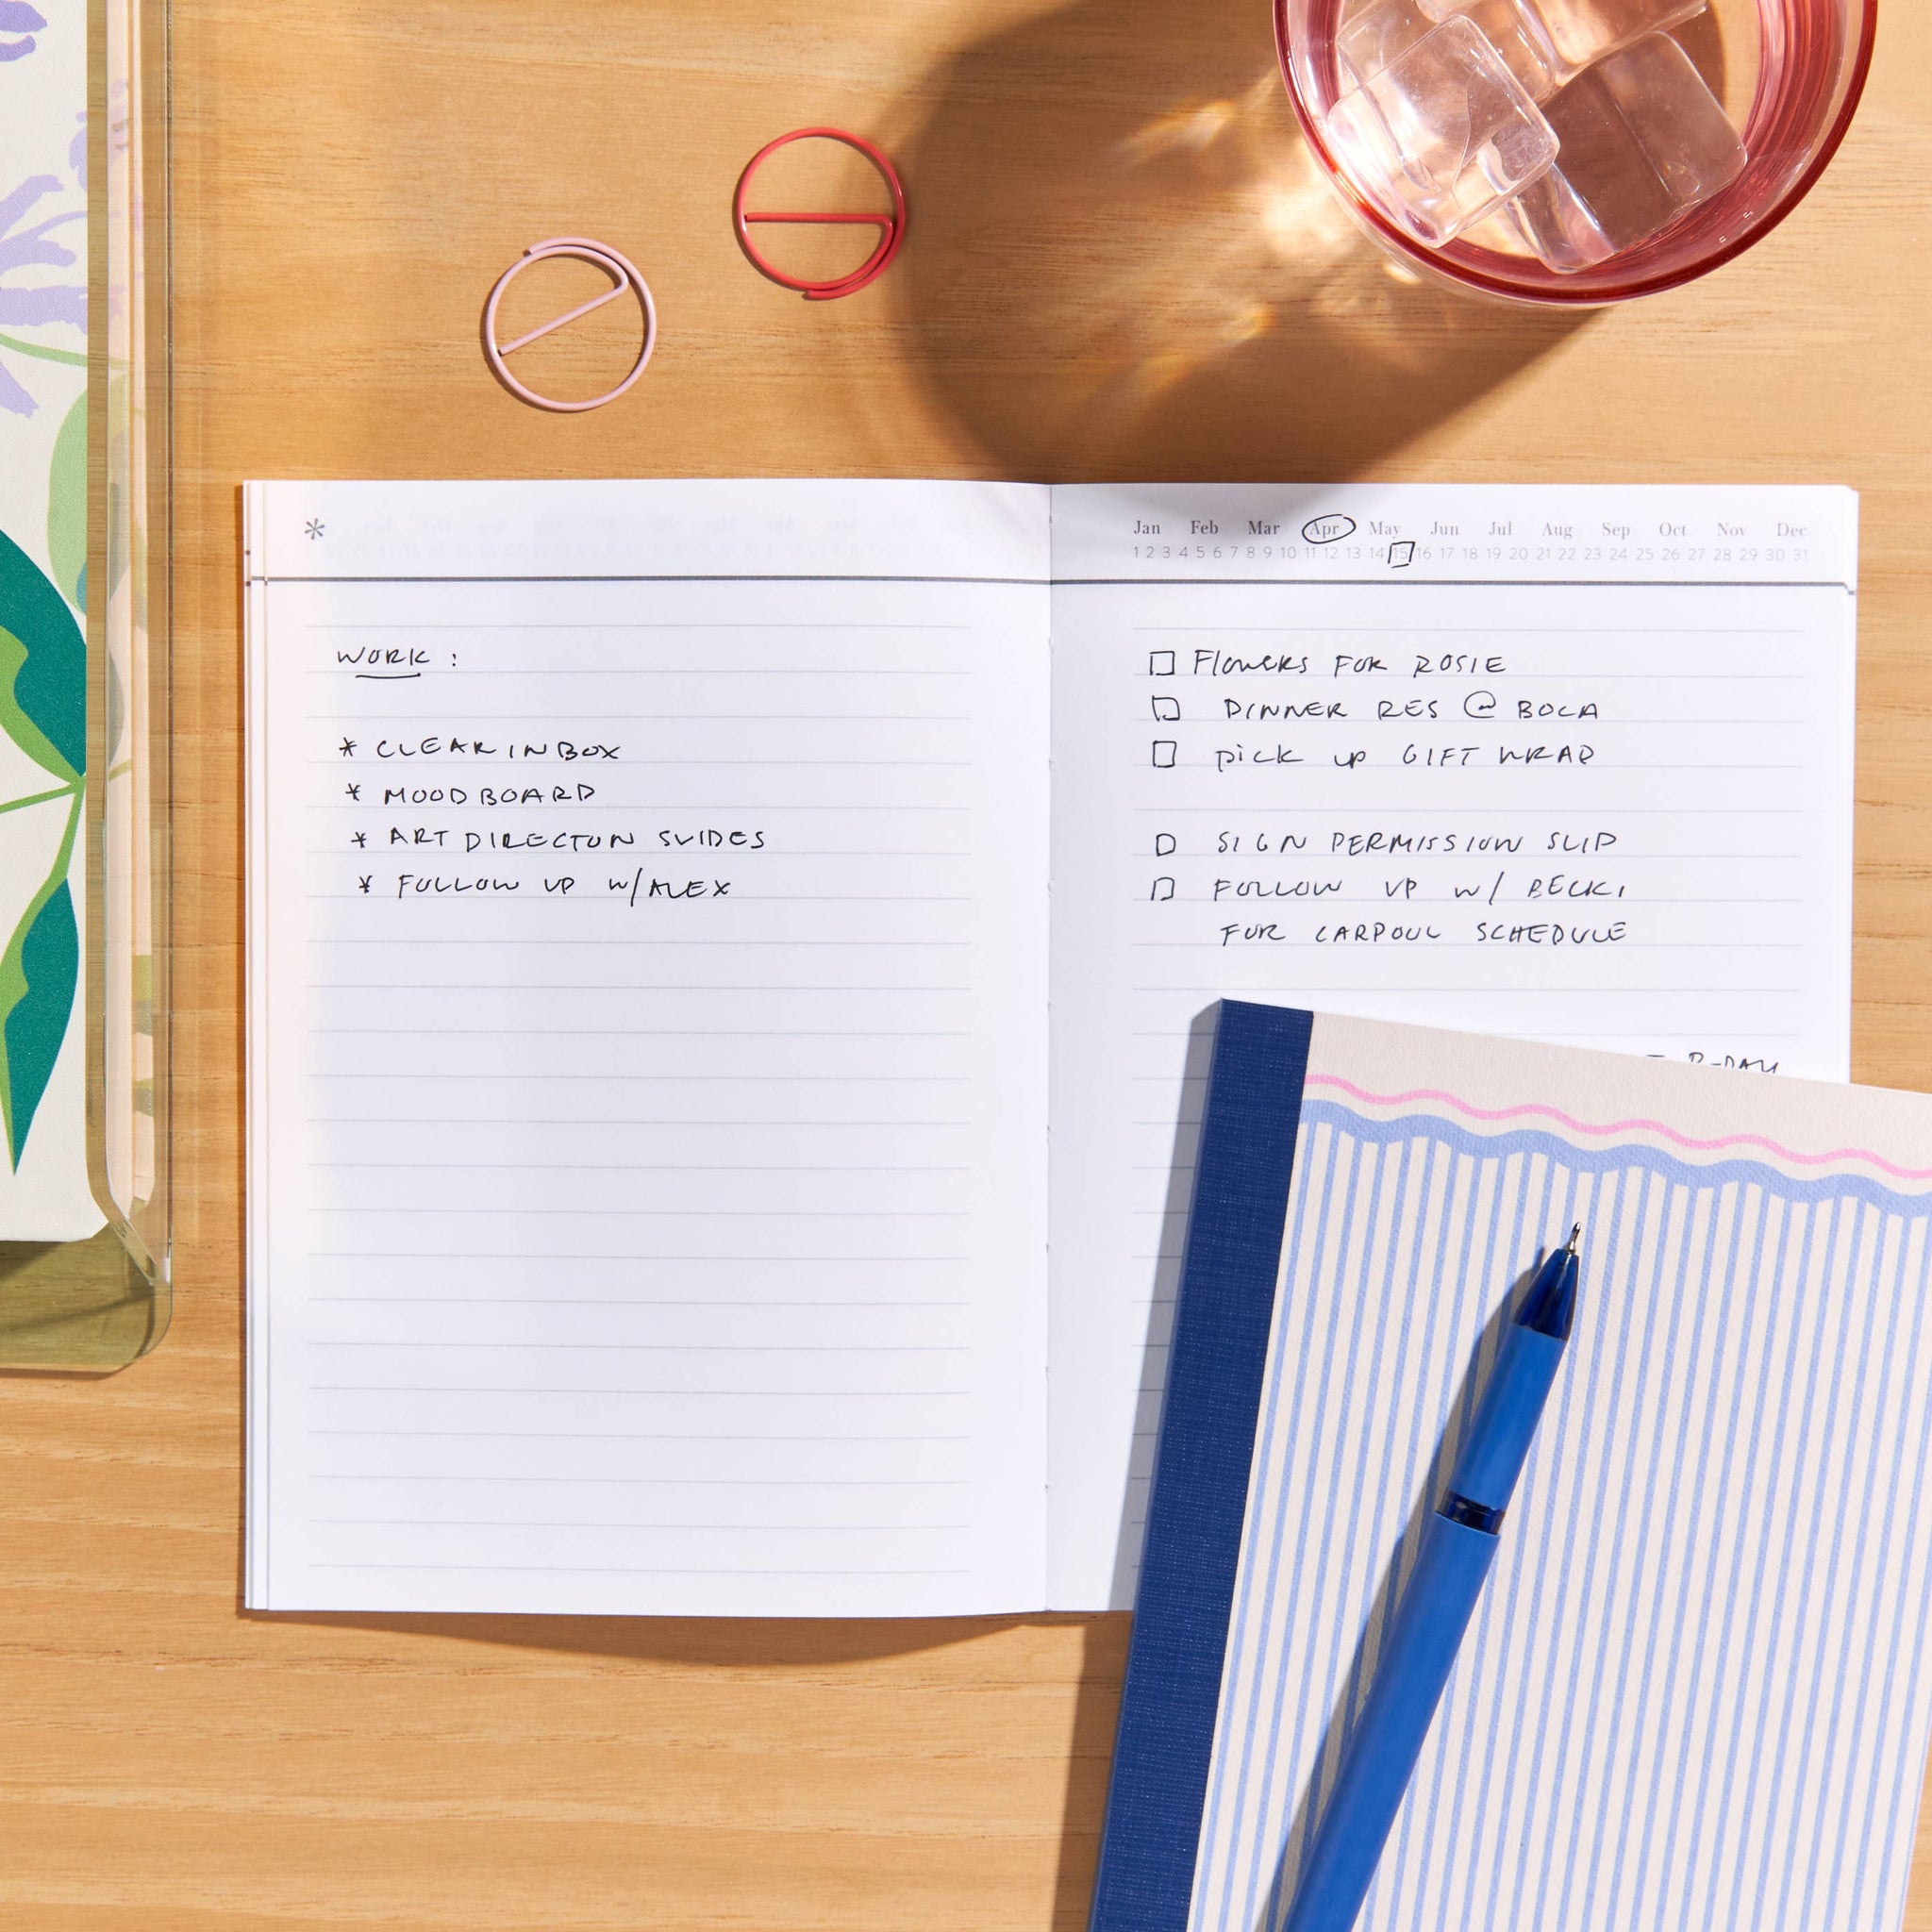 *
WORK :
* CLEAR INBOX
* MOODBOARD
* ART DIRECTION SLIDES
* FOLLOW UP W/ALEX
Jan Feb Mar Apr May Jun Jul Aug Sep Oct Nov Dec
1 2 3 4 5 6 7 8 9 10 11 12 13 14 15 16 17 18 19 20 21 22 23 24 25 26 27 28 29 30 31
FLOWERS FOR ROSIE
DINNER RES @ BOCA
PICK UP GIFT WRAP
SIGN PERMISSION SLIP
FOLLOW UP W/ BECKI
FOR CARPOOL SCHEDULE
B-DAY